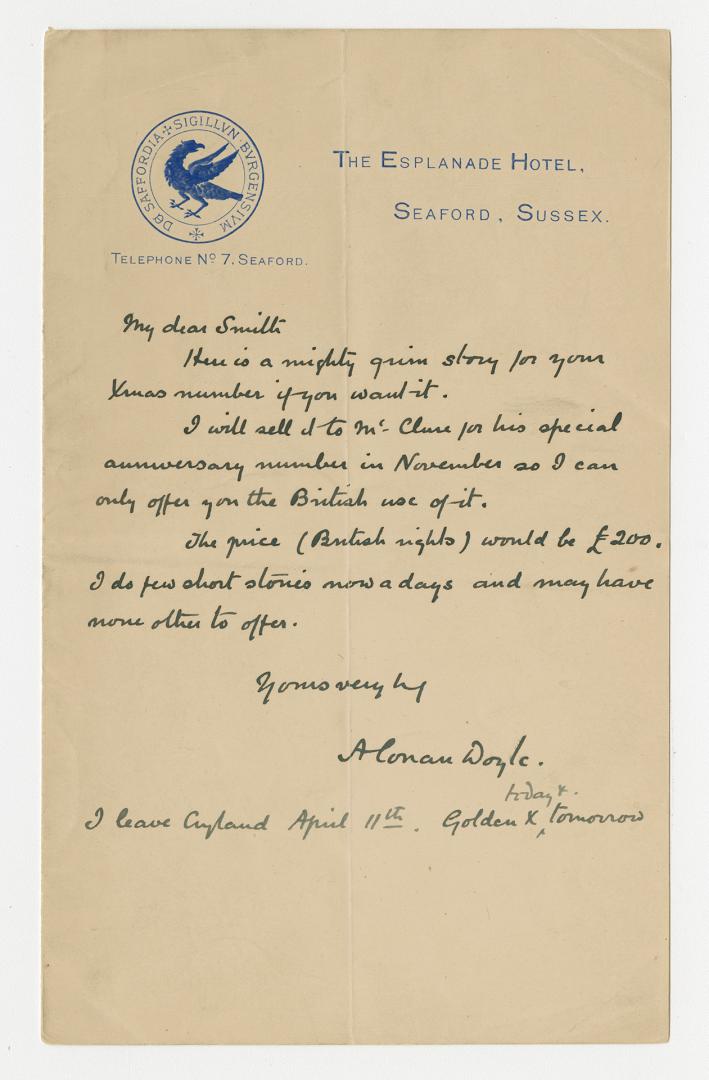 DE SAFFORDIA SIGILLVN BVRGENSIVM
THE ESPLANADE HOTEL,
SEAFORD, SUSSEX.
TELEPHONE No 7. SEAFORD.
My dear Smith
Here is a mighty grim story for your
Xmas number if you want it.
I will sell it to Mc Clure for his special
anniversary number in November so I can
only offer you the British use of it.
The price (British rights) would be £200.
I do few short stories now a days and may have
none other to offer.
Yours very try
A Conan Doyle.
today &
I leave England April 11th. Golden X tomorrow